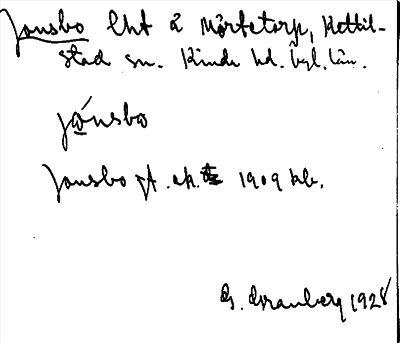 Jonsbo lht å Mörtetorp, Kettil-
stad sn. Kinda hd. Ögl. län.
jónsbo
Jonsbo gt. ek. 1909 kb.
G. Franzberg 1928